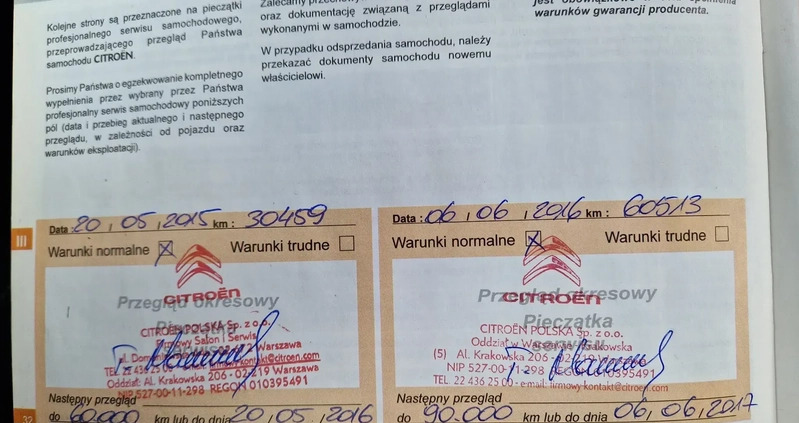 Kolejne strony są przeznaczone na pieczątki
profesjonalnego serwisu samochodowego,
przeprowadzającego przegląd Państwa
samochodu CITROËN.
Prosimy Państwa o egzekwowanie kompletnego
wypełnienia przez wybrany przez Państwa
profesjonalny serwis samochodowy poniższych
pól (data i przebieg aktualnego i następnego
przeglądu, w zależności od pojazdu oraz
warunków eksploatacji).
oraz dokumentację związaną z przeglądami
wykonanymi w samochodzie.
W przypadku odsprzedania samochodu, należy
przekazać dokumenty samochodu nowemu
właścicielowi.
warunków gwarancji producenta.
III
Data : 20 , 05 , 2015 km : 30459
Warunki normalne Warunki trudne
CITROËN
Przegląd okresowy
Pieczątka
CITROËN POLSKA Sp. z o.o.
Firmowy Salon i Serwis
Warszawa
TEL. 22 436 25 00
Oddział: Al. Krakowska 206 - 02-219 Warszawa
NIP 527-00-11-298 REGON 010395491
Następny przegląd
do 60.000 km lub do dnia 20 , 05 , 2016
32
Data : 06 , 06 , 2016 km : 60513
Warunki normalne Warunki trudne
CITROËN
Przegląd okresowy
Pieczątka
CITROËN POLSKA Sp. z o.o.
Oddział w Warszawie Krakowska
(5) Al. Krakowska 206 - 02-219
NIP 527-00-11-298 REGON 010395491
TEL. 22 436 25 00 - email: firmowy-kontakt@citroen.com
Następny przegląd
do 90.000 km lub do dnia 06 , 06 , 2017